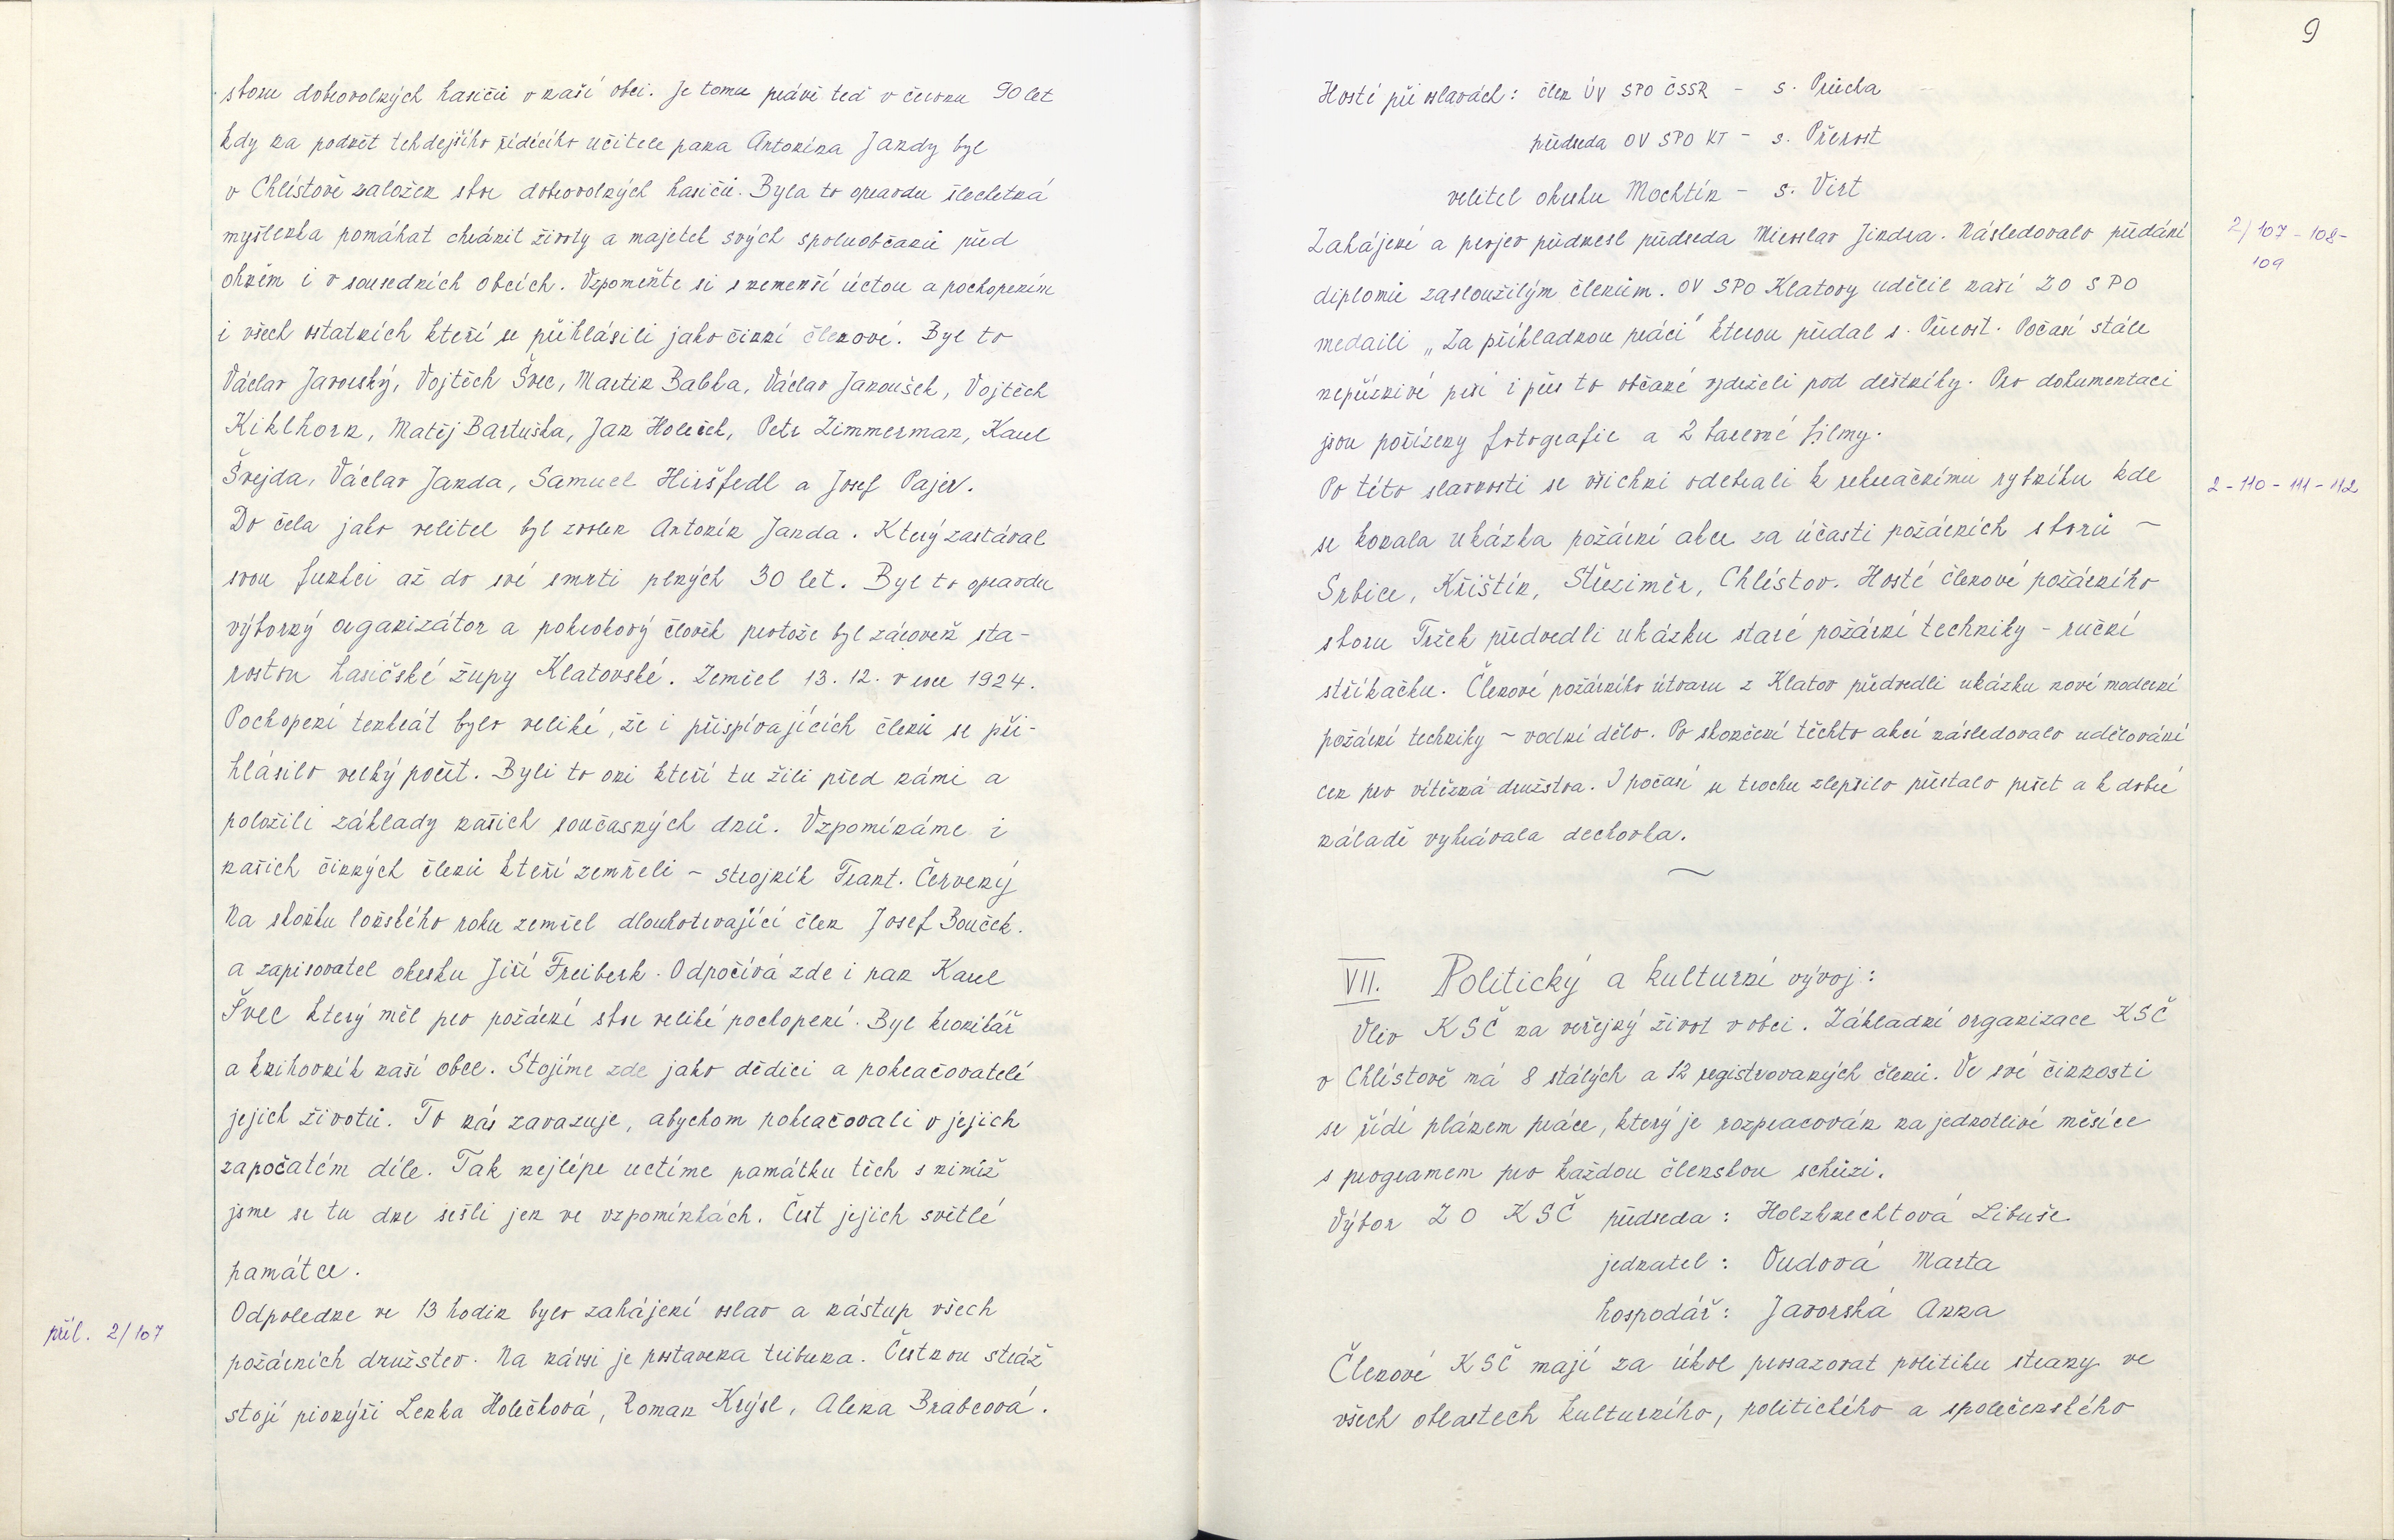 sboru dobrovolných hasičů v naší obci. Je tomu právě teď v červnu 90 let
kdy na podnět tehdejšího řídícího učitele pana Antonína Jandy byl
v Chlístově založen sbor dobrovolných hasičů. Byla to opravdu šlechetná
myšlenka pomáhat chránit životy a majetek svých spoluobčanů před
ohněm i v sousedních obcích. Vzpomeňte si s nemenší úctou a pochopením
i všech ostatních kteří se přihlásili jako činní členové. Byl to
Václav Javorský, Vojtěch Švec, Martin Babka, Václav Janoušek, Vojtěch
Kihlhorn, Matěj Bartuška, Jan Holeček, Petr Zimmerman, Karel
Švejda, Václav Janda, Samuel Hiršfedl a Josef Pajer.
Do čela jako velitel byl zvolen Antonín Janda. Který zastával
svou funkci až do své smrti plných 30 let. Byl to opravdu
výborný organizátor a pokrokový člověk protože byl zároveň sta-
rostou hasičské župy Klatovské. Zemřel 13. 12. v roce 1924.
Pochopení tenkrát bylo veliké, že i přispívajících členů se při-
hlásilo velký počet. Byli to oni kteří tu žili před námi a
položili základy našich současných dnů. Vzpomínáme i
našich činných členů kteří zemřeli – strojník Frant. Červený
Na sklonku loňského roku zemřel dlouhotrvající člen Josef Bouček.
a zapisovatel okrsku Jiří Freiberk. Odpočívá zde i pan Karel
Švec který měl pro požární sbor veliké pochopení. Byl kronikář
a knihovník naší obce. Stojíme zde jako dědici a pokračovatelé
jejich životů. To nás zavazuje, abychom pokračovali v jejich
započatém díle. Tak nejlépe uctíme památku těch s nimiž
jsme se tu dne sešli jen ve vzpomínkách. Čest jejich světlé
památce.
Odpoledne ve 13 hodin bylo zahájení oslav a nástup všech
příl. 2/107
požárních družstev. Na návsi je postavena tribuna. Čestnou stráž
stojí pionýři Lenka Holečková, Roman Krýsl, Alena Brabcová.
9
Hosté při oslavách: člen ÚV SPO ČSSR – s. Průcha
předseda OV SPO KT – s. Přerost
velitel okrsku Mochtín – s. Virt
Zahájení a projev přednesl předseda Miroslav Jindra. Následovalo předání
2/107-108-
109
diplomů zasloužilým členům. OV SPO Klatovy udělil naší ZO SPO
medaili „Za příkladnou práci" kterou předal s. Přerost. Počasí stále
nepříznivé prší i přes to občané vydrželi pod deštníky. Pro dokumentaci
jsou pořízeny fotografie a 2 barevné filmy.
Po této slavnosti se všichni odebrali k rekreačnímu rybníku kde
2-110-111-112
se konala ukázka požární akce za účasti požárních sborů –
Srbice, Křištín, Střeziměr, Chlístov. Hosté členové požárního
sboru Tržek předvedli ukázku staré požární techniky – ruční
stříkačku. Členové požárního útvaru z Klatov předvedli ukázku nové moderní
požární techniky – vodní dělo. Po skončení těchto akcí následovalo udělování
cen pro vítězná družstva. I počasí se trochu zlepšilo přestalo pršet a k dobré
náladě vyhrávala dechovka.
VII. Politický a kulturní vývoj:
Vliv KSČ na veřejný život v obci. Základní organizace KSČ
v Chlístově má 8 stálých a 12 registrovaných členů. Ve své činnosti
se řídí plánem práce, který je rozpracován na jednotlivé měsíce
s programem pro každou členskou schůzi.
Výbor ZO KSČ předseda: Holzknechtová Libuše
jednatel: Oudová Marta
hospodář: Javorská Anna
Členové KSČ mají za úkol prosazovat politiku strany ve
všech oblastech kulturního, politického a společenského